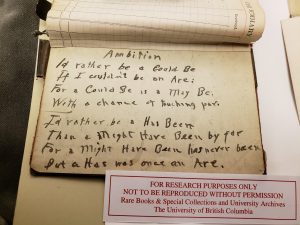 Ambition
I'd rather be a Could Be
If I couldn't be an Are;
For a Could Be is a May Be,
With a chance of
I'd rather be a Has Been
Than a Might Have Been by far
For a Might Have Been has never been
But a Has was once an Are.
FOR RESEARCH PURPOSES ONLY
NOT TO BE REPRODUCED WITHOUT PERMISSION
Rare Books & Special Collections and University Archives
The University of British Columbia